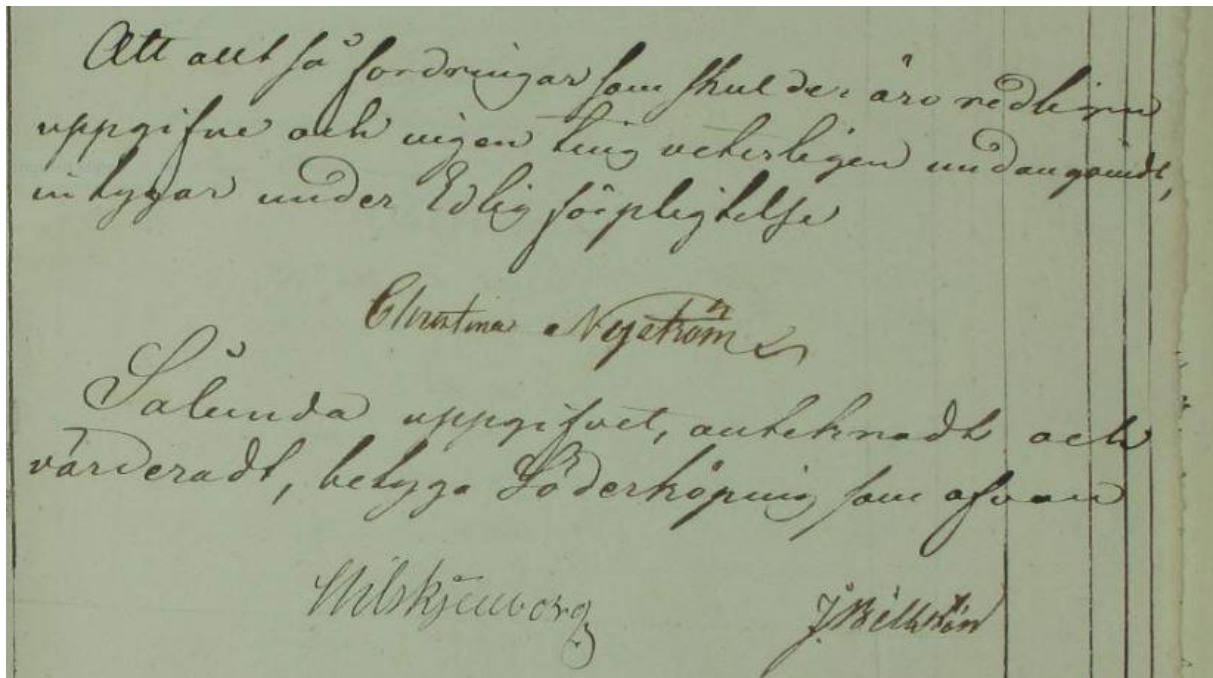 Att allt så fordringar som skulder äro redligen
uppgifne och ingen ting veterligen undangömdt,
intygar under Edlig förpligtelse
Christina Nyström
Sålunda uppgifvet, antecknadt och
värderadt, betyga Söderköping som ofvan